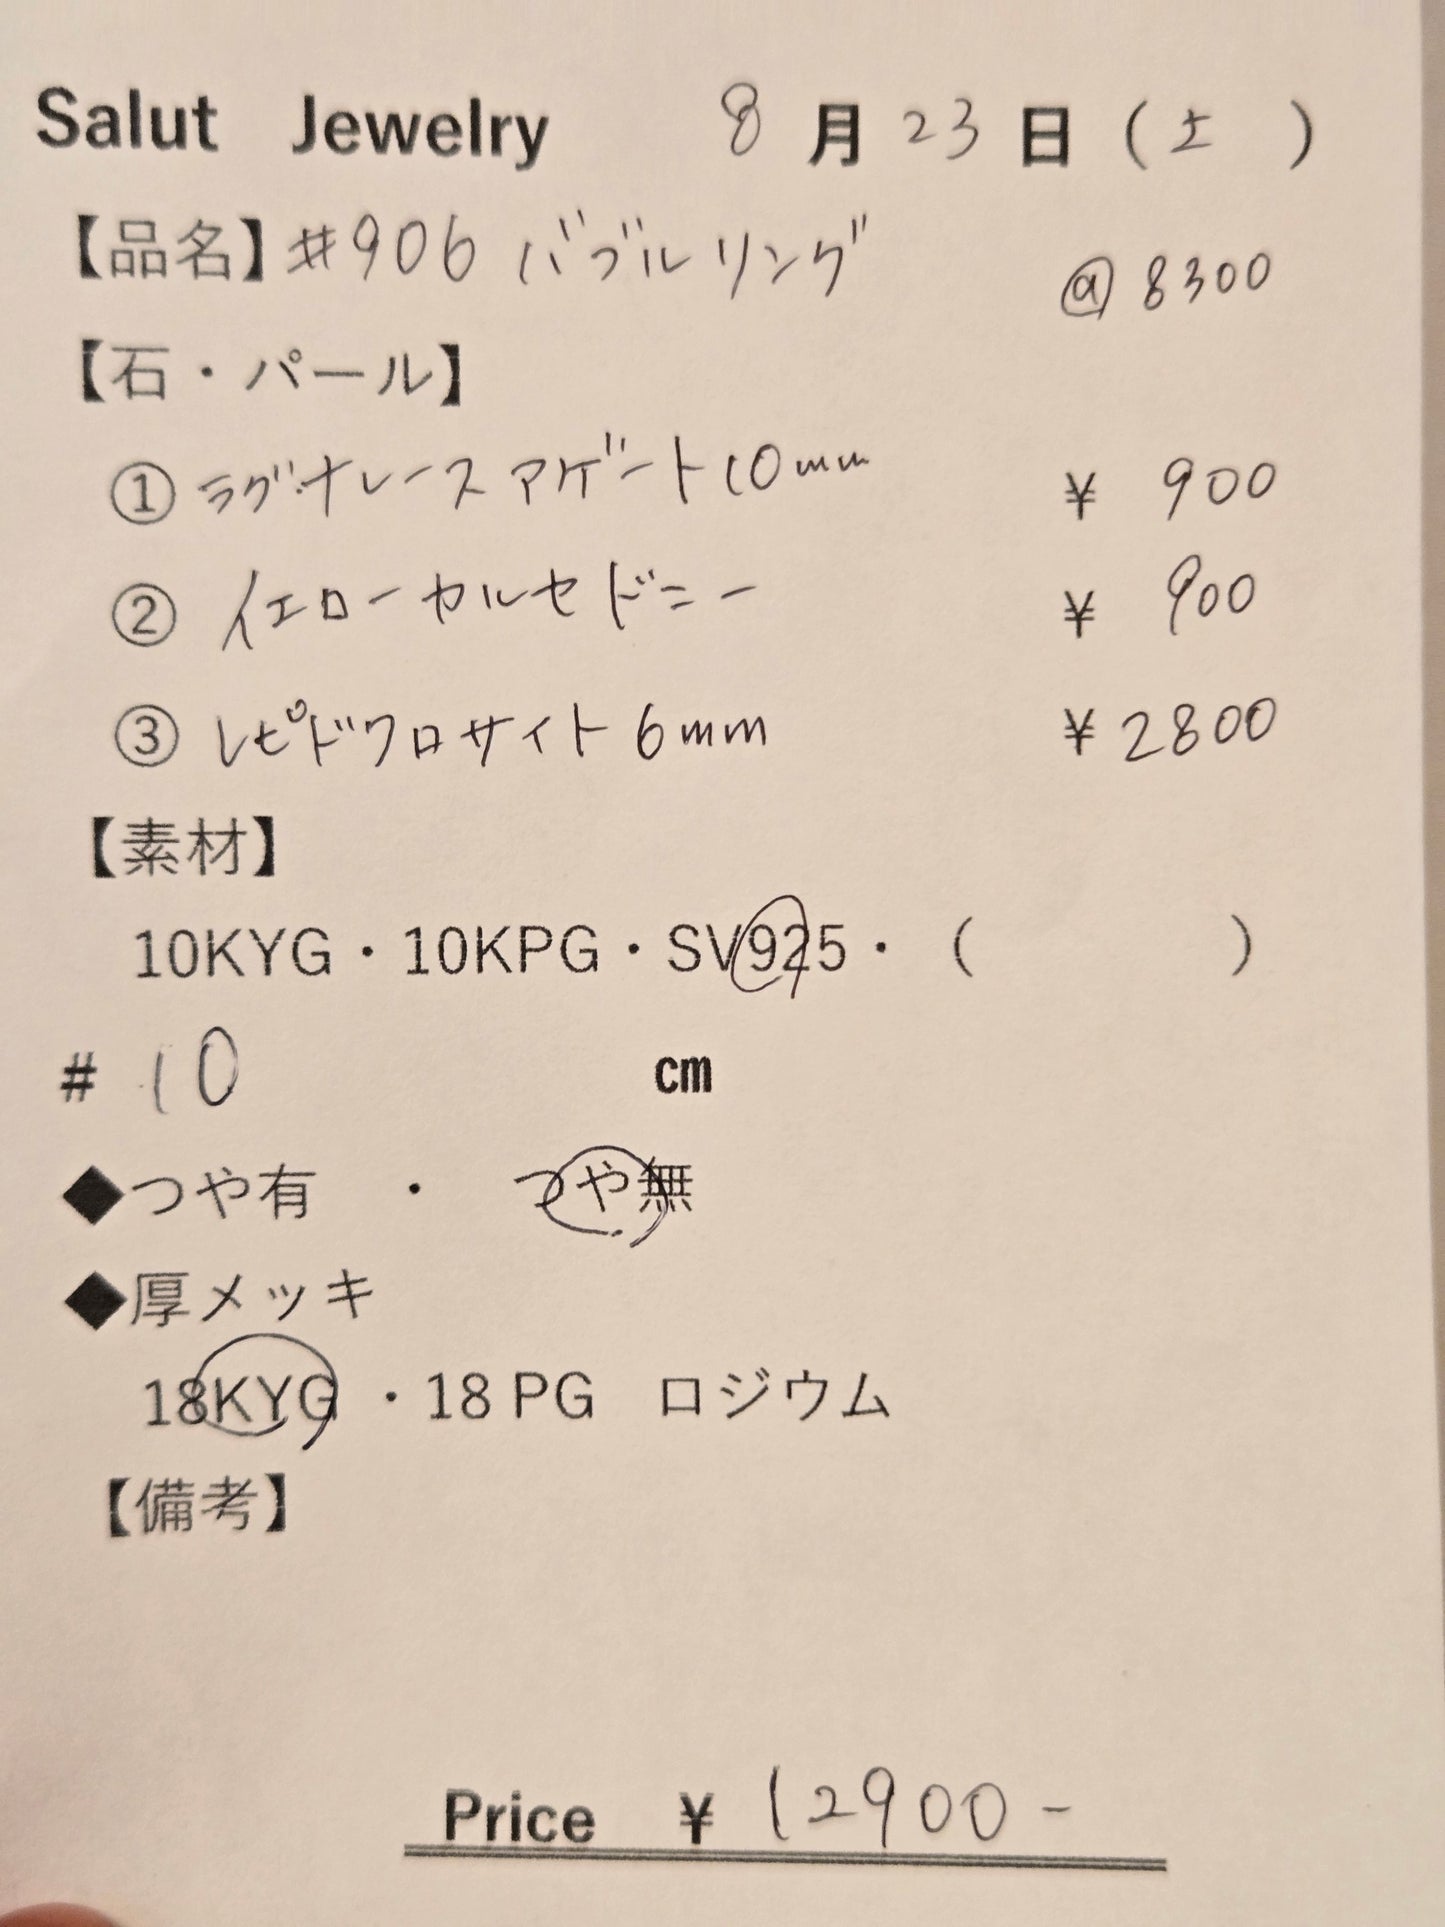 Salut Jewelry 8月23日(土)
【品名】#906 バブルリング
@8300
【石・パール】
①ラグナレースアゲート10mm ¥900
②イエローカルセドニー ¥900
③レピドクロサイト6mm ¥2800
【素材】
10KYG・10KPG・SV925・( )
# 10 cm
◆つや有 ・ つや無
◆厚メッキ
18KYG ・18 PG ロジウム
【備考】
Price ¥12900-